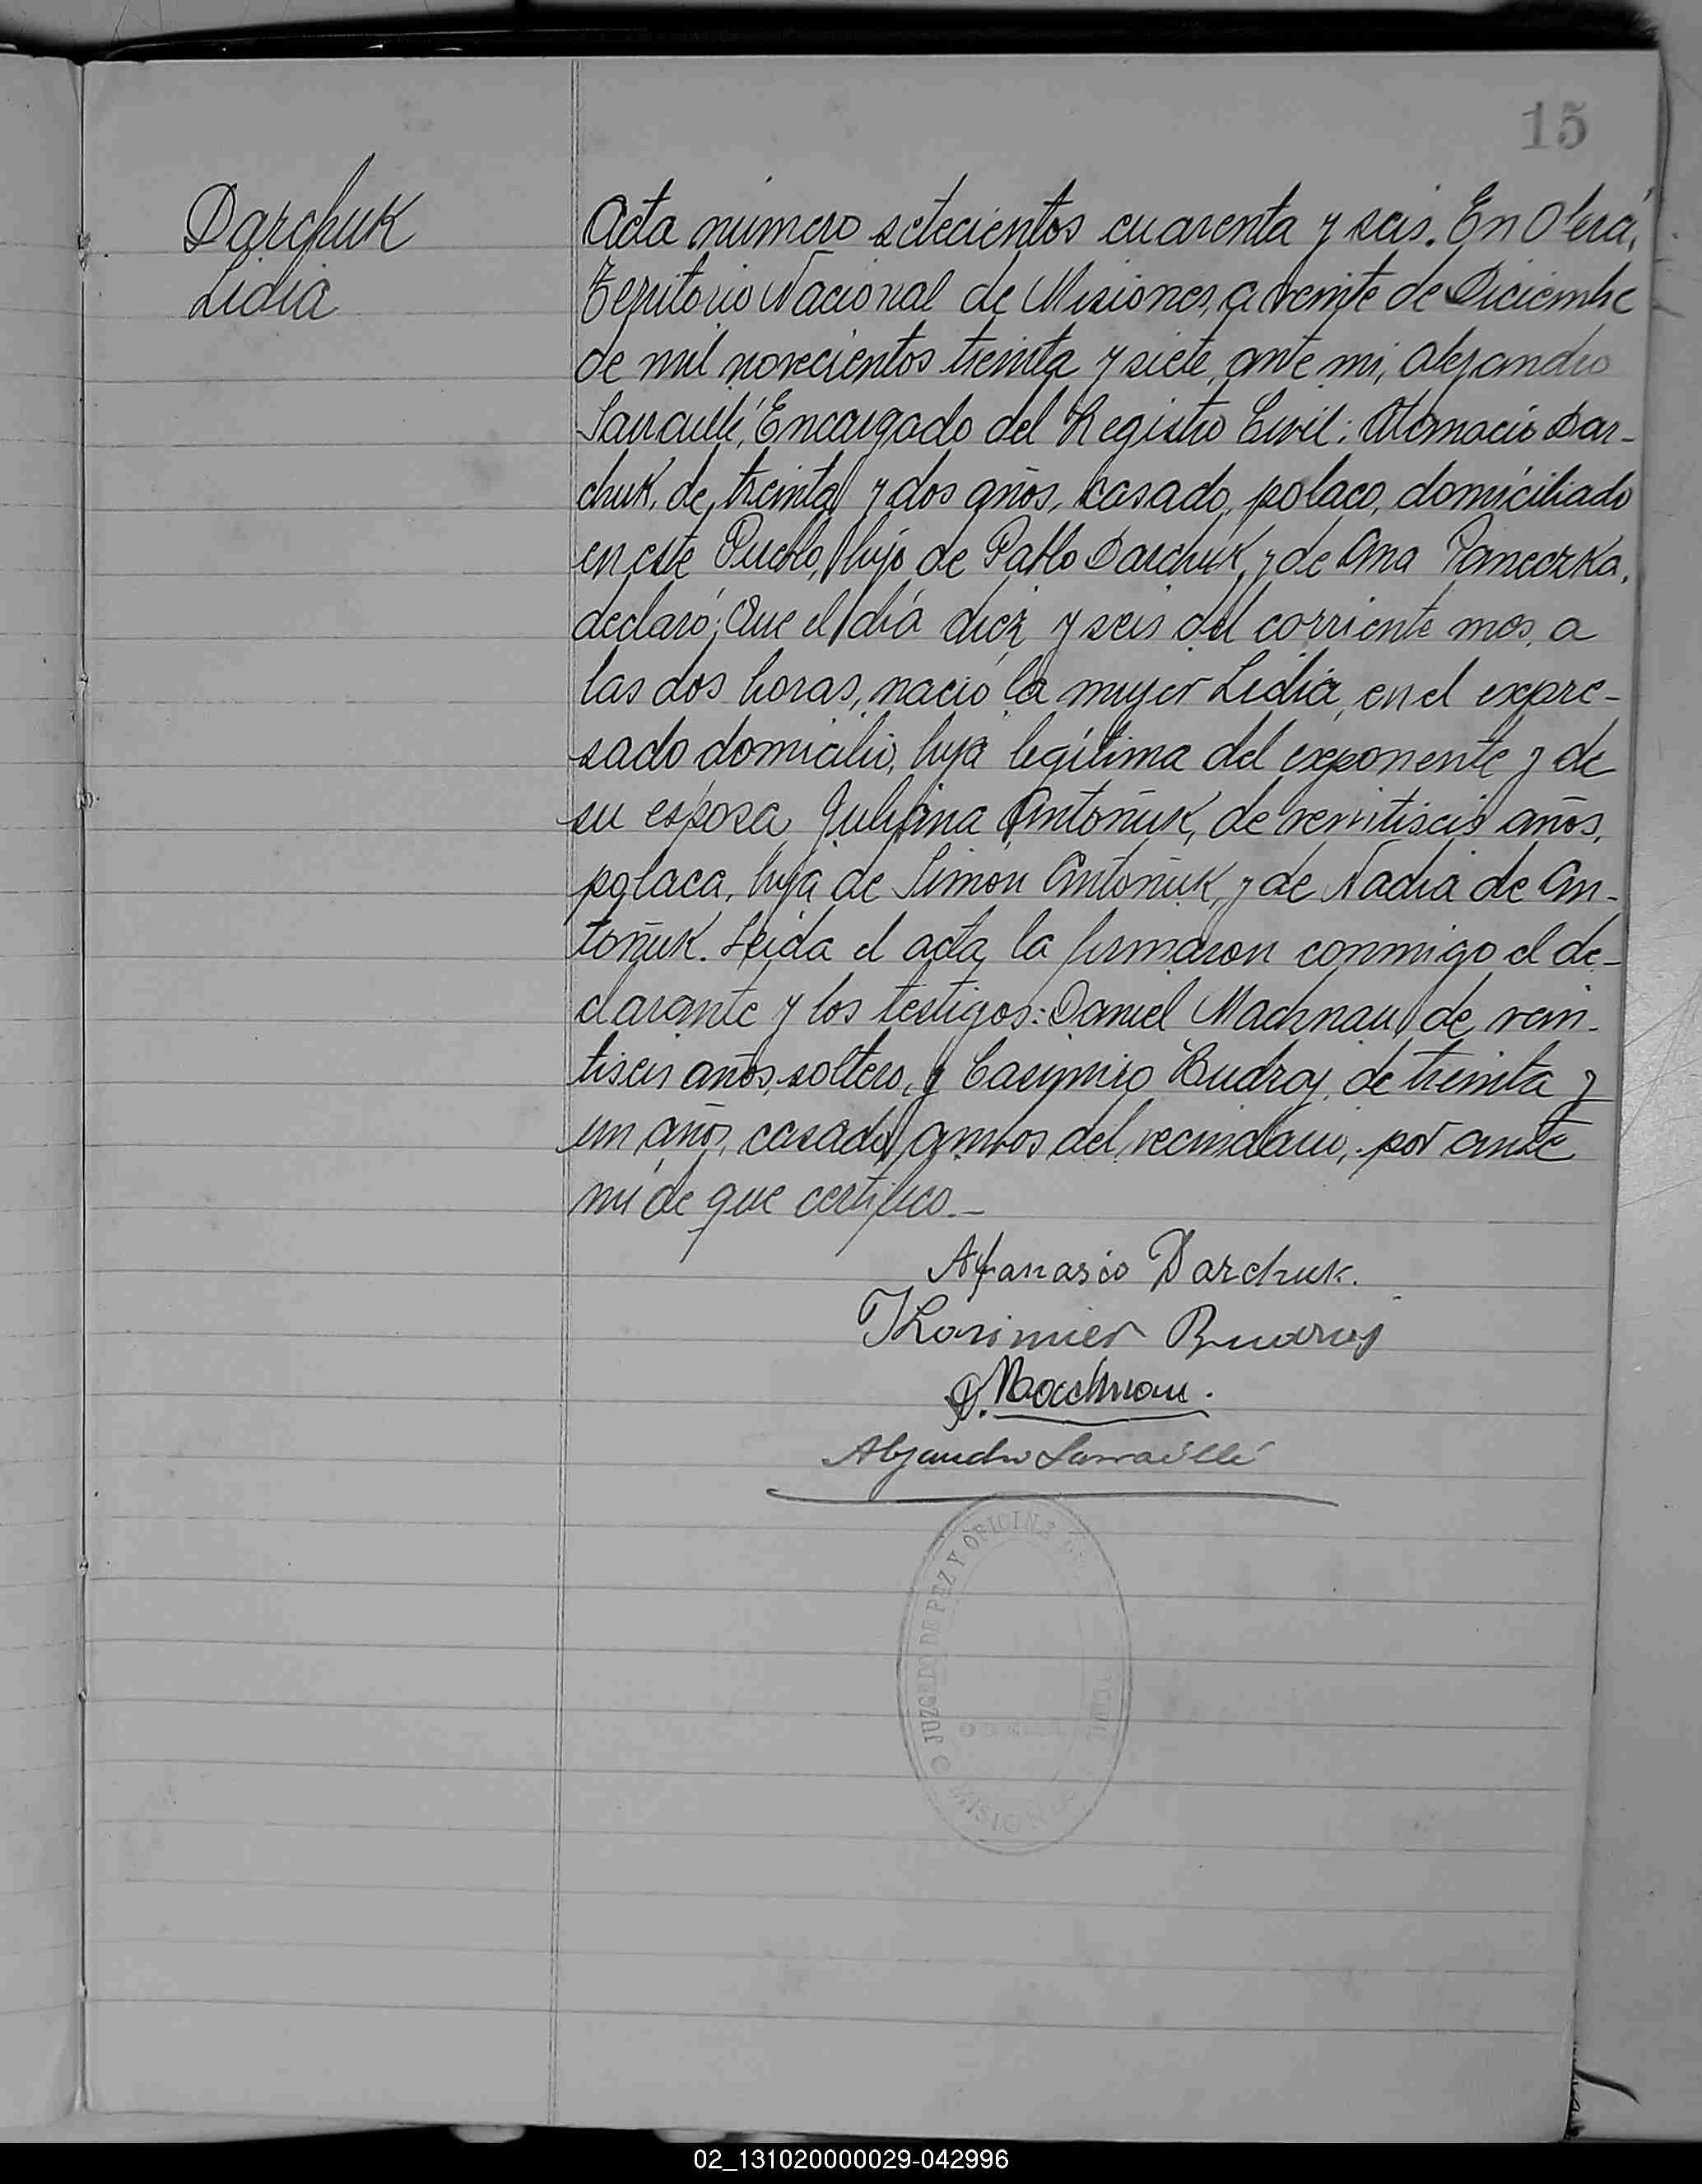 15
Darchuk
Lidia
Acta número setecientos cuarenta y seis. En Oberá,
Territorio Nacional de Misiones, a veinte de Diciembre
de mil novecientos treinta y siete, ante mi, Alejandro
Sarraillé, Encargado del Registro Civil: Atanacio Dar-
chuk, de treinta y dos años, casado, polaco, domiciliado
en este Pueblo, hijo de Pablo Darchuk, y de Ana
declaró: Que el día diez y seis del corriente mes, a
las dos horas, nació la mujer Lidia, en el expre-
sado domicilio, hija legítima del exponente y de
su esposa Juliana Antoñuk, de veintiseis años,
polaca, hija de Simón Antoñuk, y de Nadia de An-
toñuk. Leida el acta, la firmaron conmigo el de-
clarante y los testigos: Daniel Machnau, de vein-
tiseis años, soltero, y Casimiro Budroj, de treinta y
un años, casado, ambos del vecindario, por ante
mi de que certifico.-
Afanasio Darchuk.
Kasimier
D. Machnau.
Alejandro Sarraillé
JUZGADO DE PAZ Y OFICINA
MISIONES
02_131020000029-042996